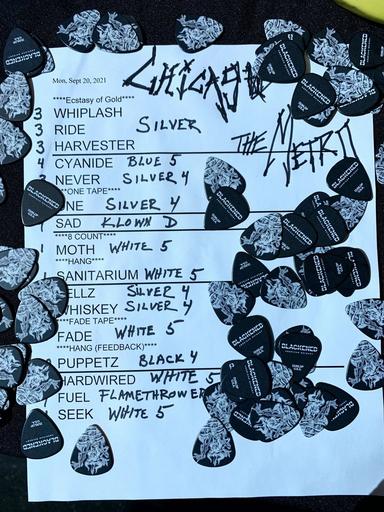 Mon, Sept 20, 2021
CHICAGO
THE METRO
****Ecstasy of Gold****
3 WHIPLASH
3 RIDE SILVER
3 HARVESTER
4 CYANIDE BLUE 5
NEVER SILVER 4
**ONE TAPE****
NE SILVER 4
SAD KLOWN D
****8 COUNT****
MOTH WHITE 5
****HANG****
SANITARIUM WHITE 5
ELLZ SILVER 4
WHISKEY SILVER 4
****FADE TAPE****
FADE WHITE 5
****HANG (FEEDBACK)****
PUPPETZ BLACK 4
HARDWIRED WHITE 5
FUEL FLAMETHROWER
SEEK WHITE 5
BLACKENED
BLACKENED
BLACKENED
BLACKENED